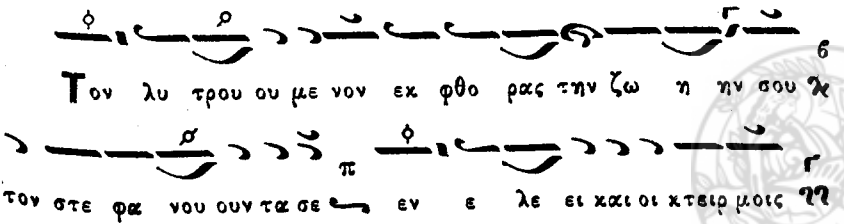 Τον λυ τρου ου με νον εκ φθο ρας την ζω η ην σου
τον στε φα νου ουν τα σε εν ε λε ει και οι κτειρ μοις